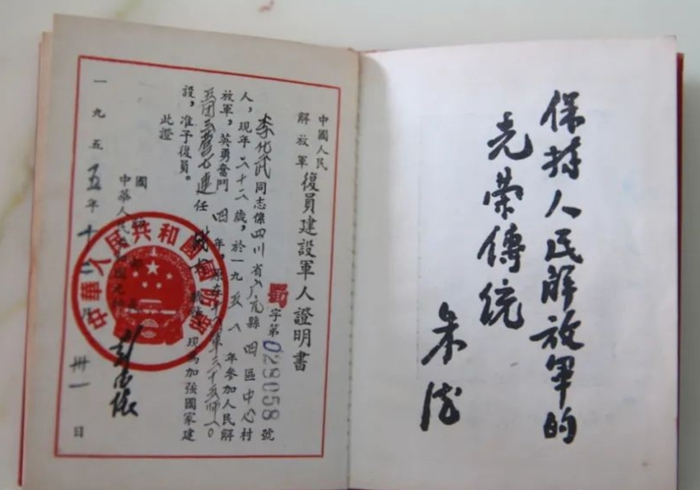 保持人民解放軍的
光榮傳統
朱德
中國人民
解放軍
復員建設軍人證明書
字第028058號
李化武同志係四川省廣元縣四區中心村
人，現年二十二歲，於一九五 年參加人民解
放軍，英勇奮鬥四年。軍三十五師一〇
五團三營七連任 現為加強國家建
設，准予復員。
此證
國
中華人民共和國元帥
彭德懷
一九五五年十二月卅一日
中華人民共和國國防部